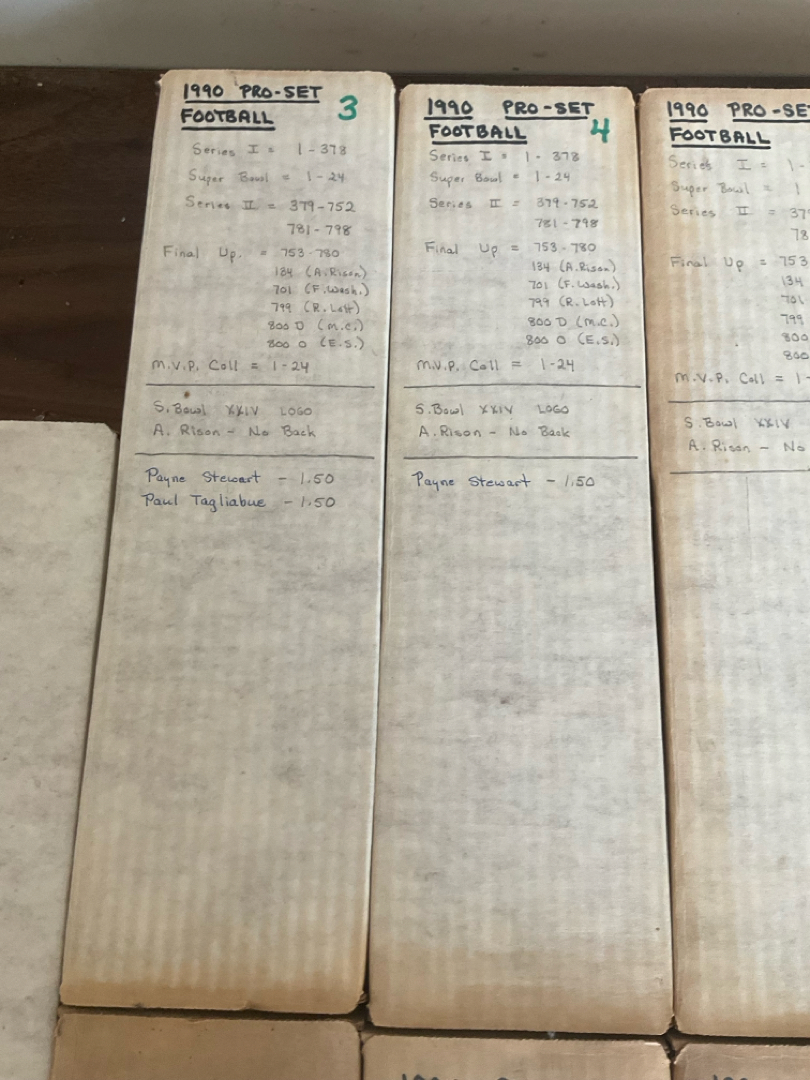 1990 PRO-SET
FOOTBALL
3
Series I = 1-378
Super Bowl = 1-24
Series II = 379-752
781-798
Final Up. = 753-780
134 (A.Rison)
701 (F.Wash.)
799 (R.Lott)
800 D (M.C.)
800 O (E.S.)
M.V.P. Coll = 1-24
S. Bowl XXIV LOGO
A. Rison - No Back
Payne Stewart - 1.50
Paul Tagliabue - 1.50
1990 PRO-SET
FOOTBALL
4
Series I = 1-378
Super Bowl = 1-24
Series II = 379-752
781-798
Final Up = 753-780
134 (A.Rison)
701 (F.Wash.)
799 (R.Lott)
800 D (M.C.)
800 O (E.S.)
M.V.P. Coll = 1-24
S.Bowl XXIV LOGO
A.Rison - No Back
Payne Stewart - 1.50
1990 PRO-SE
FOOTBALL
Series I = 1-
Super Bowl = 1
Series II = 37
78
Final Up = 753
134
701
799
800
800
M.V.P. Coll = 1-
S. Bowl XXIV
A. Rison - No